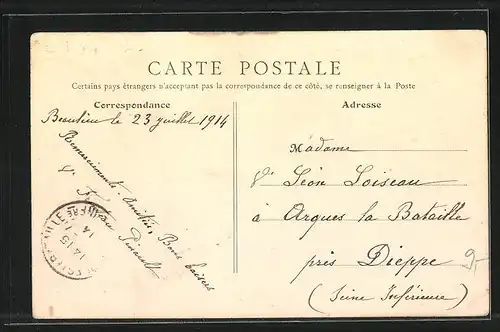 CARTE POSTALE
Certains pays étrangers n'acceptant pas la correspondance de ce côté, se renseigner à la Poste
Correspondance
Adresse
Beaulieu le 23 juillet 1914
Remerciements. Amitiés, Bons baisers
Vᵉ
Madame
Vᵉ Léon Loiseau
à Arques la Bataille
près Dieppe
(Seine Inférieure)
9-